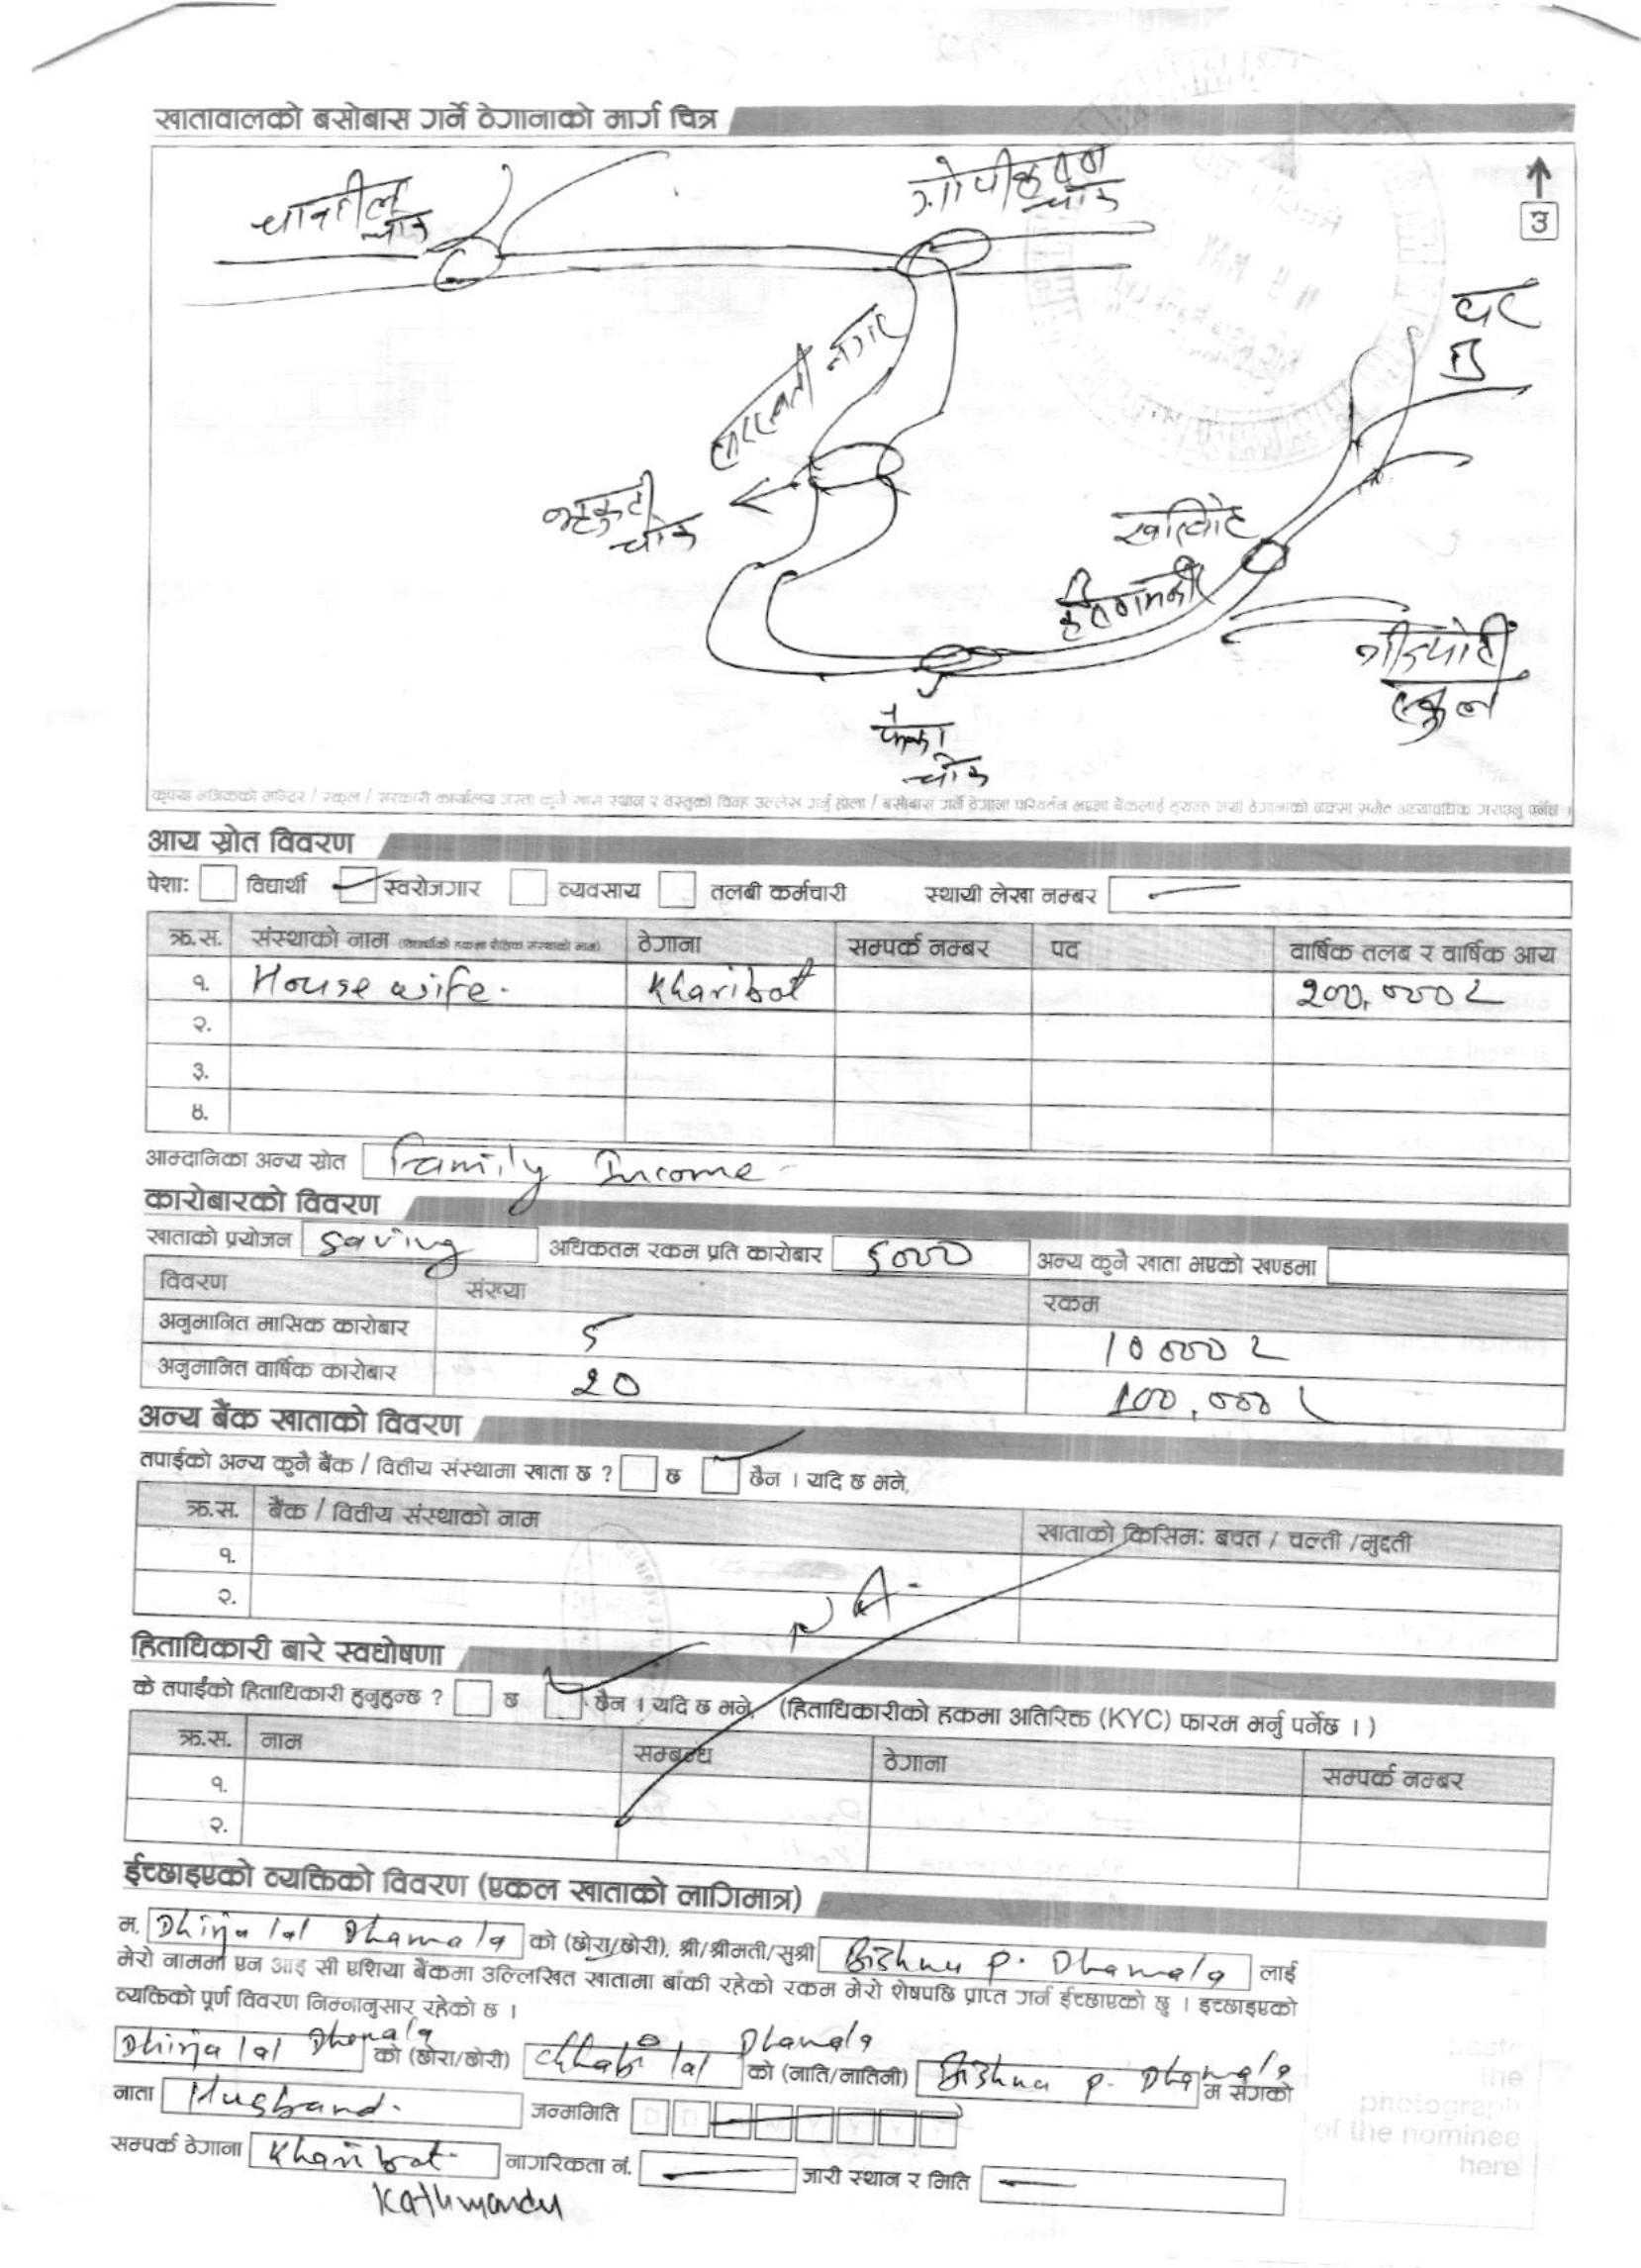 खातावालको बसोबास गर्ने ठेगानाको मार्ग चित्र
उ
चावहिल चोक
गोपीकृष्ण चोक
घर
सरस्वती नगर
भृकुटी चोक
खरिबोट
चोक
स्कुल
कृपया नजिकको मन्दिर / स्कूल / सरकारी कार्यालय जस्ता कुनै खास स्थान र वस्तुको चिन्ह उल्लेख गर्नु होला / बसोबास गर्ने ठेगाना परिवर्तन भएमा बैंकलाई तुरुन्त नयाँ ठेगानाको नक्सा समेत अद्यावधिक गराउनु पर्नेछ ।
आय स्रोत विवरण
पेशा: विद्यार्थी स्वरोजगार व्यवसाय तलबी कर्मचारी स्थायी लेखा नम्बर
क्र.स. संस्थाको नाम (विद्यार्थीको हकमा शैक्षिक संस्थाको नाम) ठेगाना सम्पर्क नम्बर पद वार्षिक तलब र वार्षिक आय
१. House wife. Kharibot 200,000/-
२.
३.
४.
आम्दानिका अन्य स्रोत Family Income -
कारोबारको विवरण
खाताको प्रयोजन Saving अधिकतम रकम प्रति कारोबार 5000 अन्य कुनै खाता भएको खण्डमा
विवरण संख्या रकम
अनुमानित मासिक कारोबार 5 10000/-
अनुमानित वार्षिक कारोबार 20 100,000/-
अन्य बैंक खाताको विवरण
तपाईको अन्य कुनै बैंक / वित्तीय संस्थामा खाता छ ? छ छैन । यदि छ भने,
क्र.स. बैंक / वित्तीय संस्थाको नाम खाताको किसिम: बचत / चल्ती /मुद्दती
१.
२.
NA-
हिताधिकारी बारे स्वघोषणा
के तपाईंको हिताधिकारी हुनुहुन्छ ? छ छैन । यदि छ भने, (हिताधिकारीको हकमा अतिरिक्त (KYC) फारम भर्नु पर्नेछ ।)
क्र.स. नाम सम्बन्ध ठेगाना सम्पर्क नम्बर
१.
२.
ईच्छाइएको व्यक्तिको विवरण (एकल खाताको लागिमात्र)
म, Dhirja lal Dhamala को (छोरा/छोरी), श्री/श्रीमती/सुश्री Bishnu P. Dhamala लाई
मेरो नाममा एन आइ सी एशिया बैंकमा उल्लिखित खातामा बांकी रहेको रकम मेरो शेषपछि प्राप्त गर्न ईच्छाएको छु । इच्छाइएको
व्यक्तिको पूर्ण विवरण निम्नानुसार रहेको छ ।
Dhirja lal Dhamala को (छोरा/छोरी) Chhabi lal Dhamala को (नाति/नातिनी) Bishnu P. Dhamala म संगको
नाता Husband. जन्ममिति
सम्पर्क ठेगाना Kharibot नागरिकता नं. जारी स्थान र मिति
Kathmandu
the
photograph
of the nominee
here